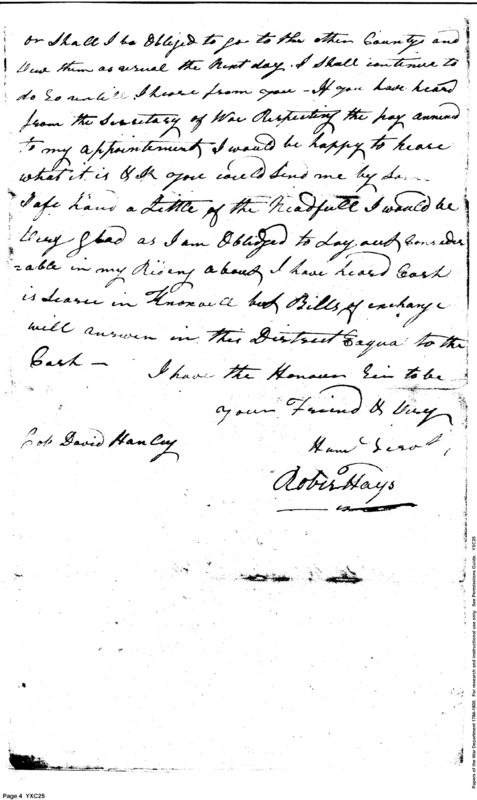 or Shall I be Obliged to go to the other Countys and
View them as usual the Next day. I shall continue to
do so untill I heare from you - If you have heard
from the Secretary of War Respecting the pay annend
to my appointement, I would be happy to heare
what it is & If you could Send me by
Safe hand a Little of the Needfull I would be
Very Glad as I am Oblidged to Lay out Consider
=able in my Riding about, I have heard Cash
is Scarce in Knoxvill but Bills of exchange
will answer in this District Eaqual to the
Cash — I have the Honour Sir to be
your Friend & Very
Col David Henley
Hum Servt,
Robt Hays
Page 4 YXC25
Papers of the War Department 1784-1800. For research and instructional use only. See Permissions Guide. YXC25